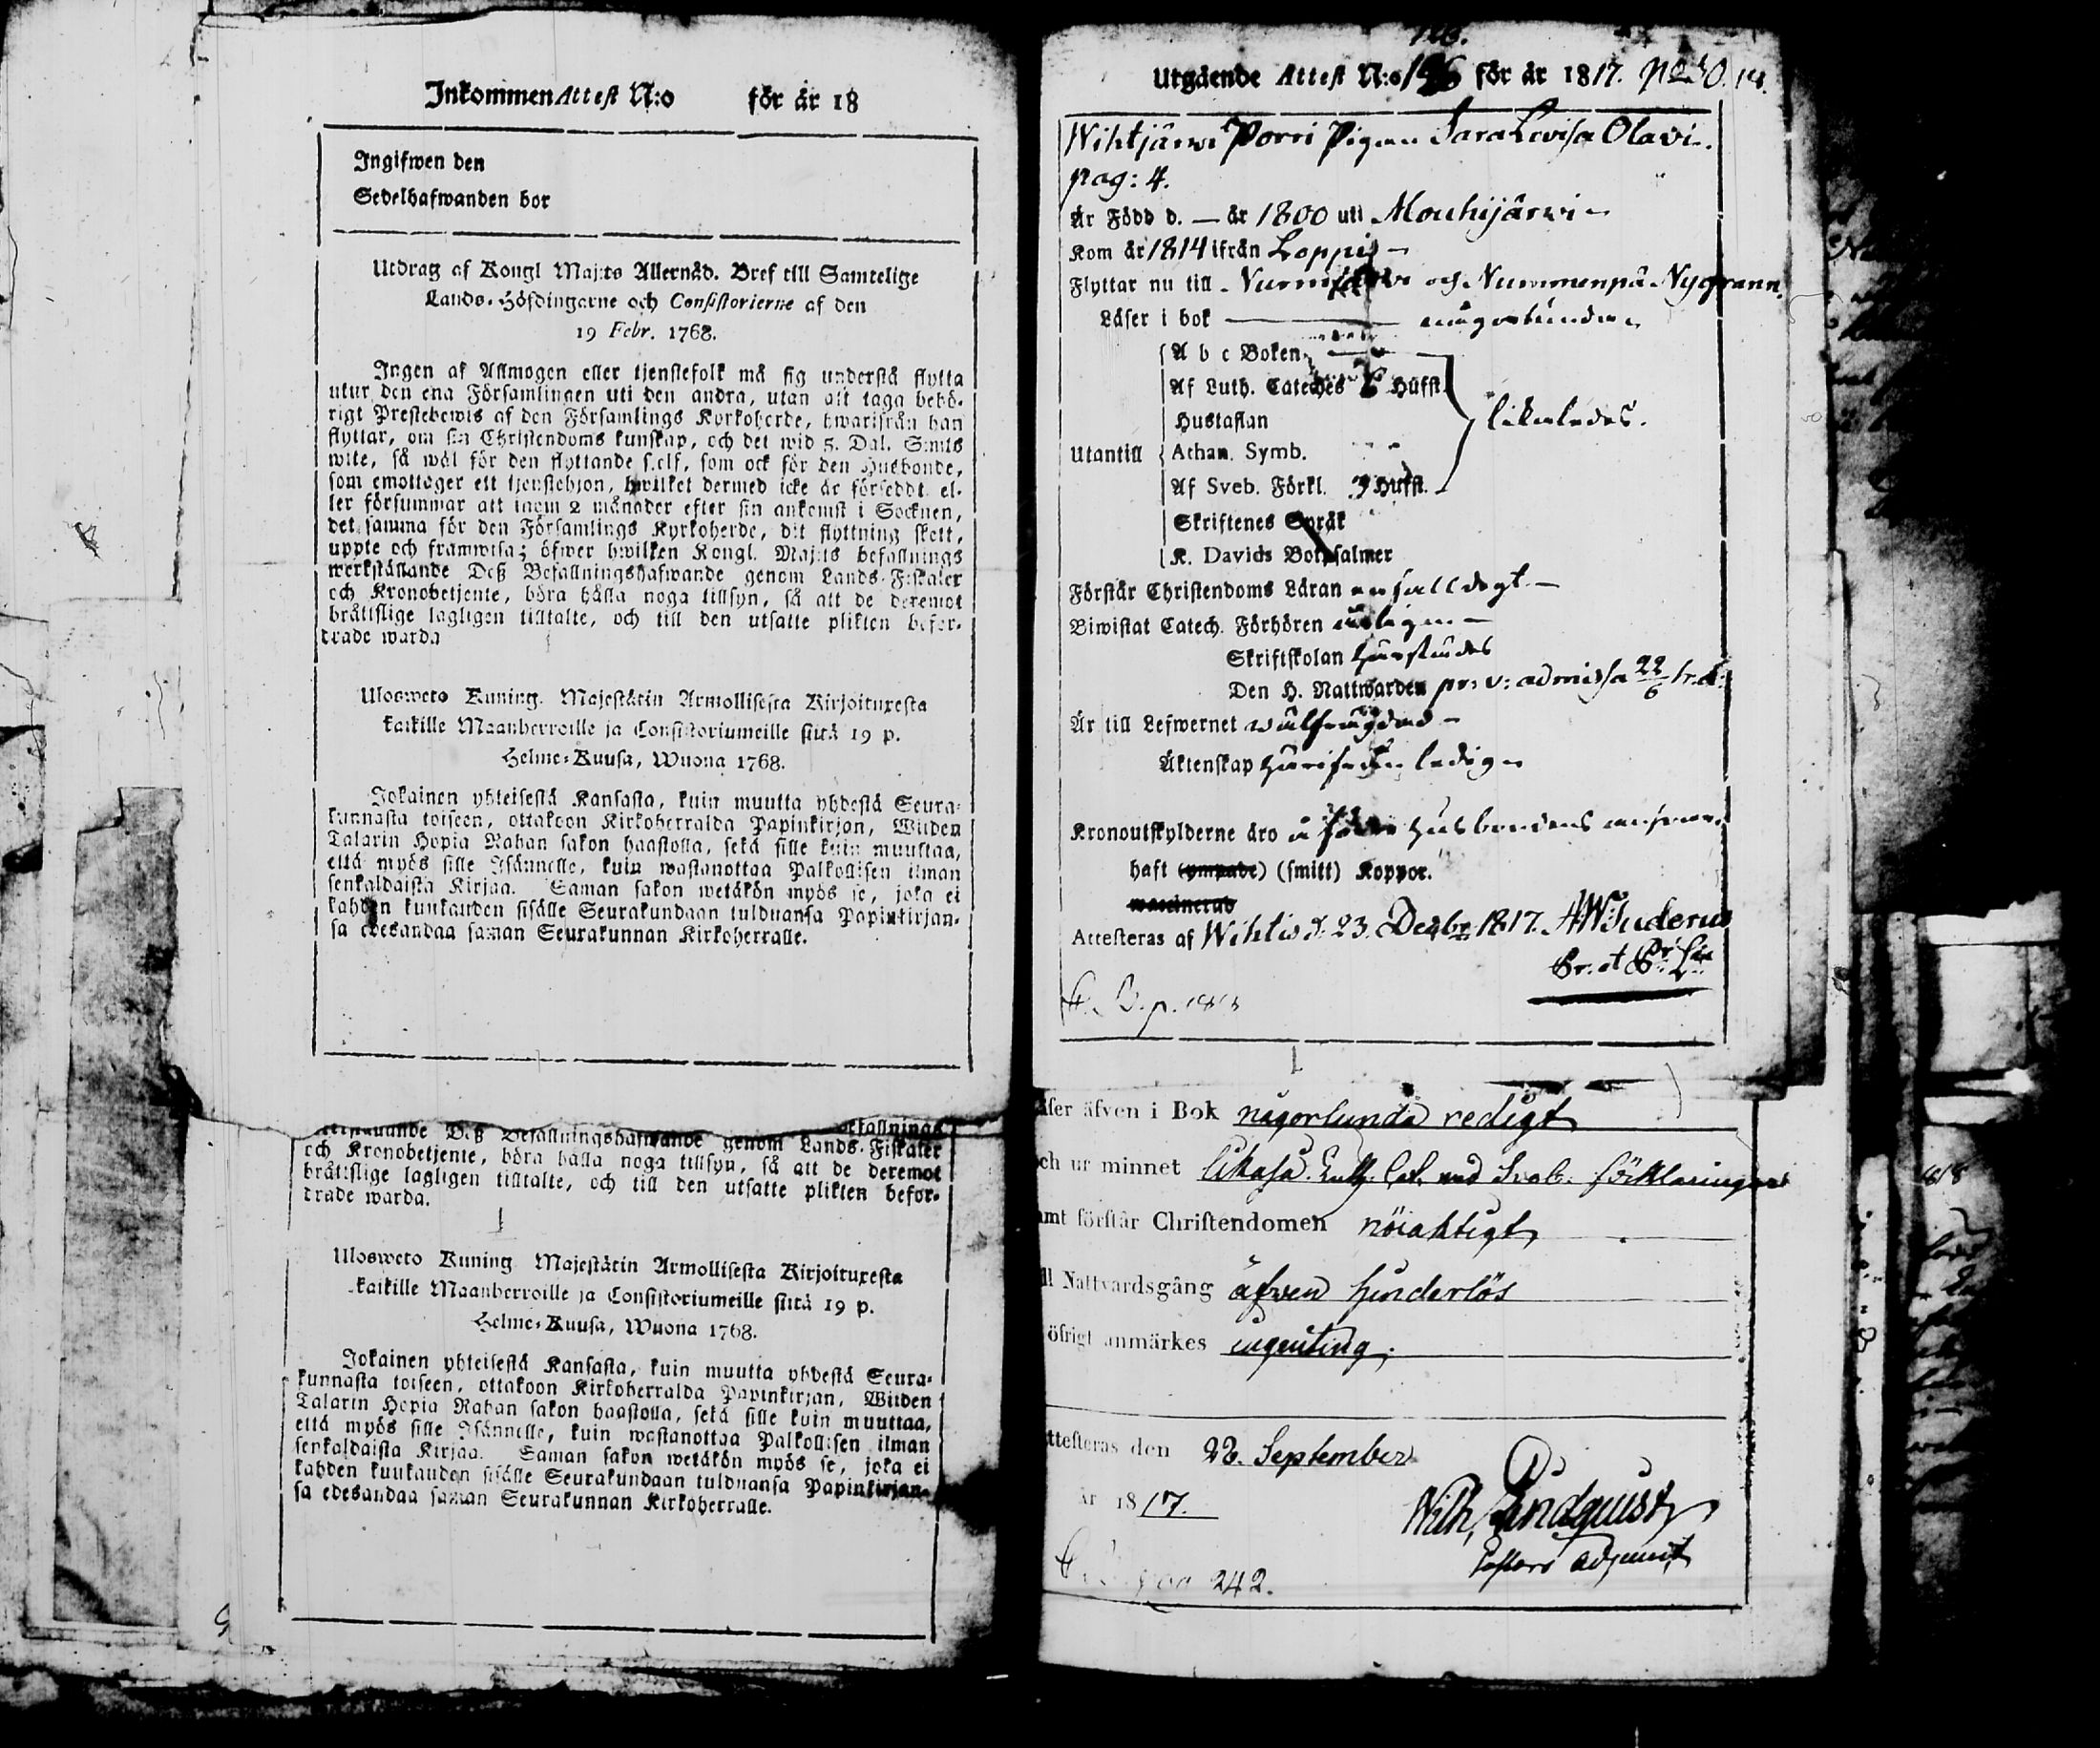 Inkommen Attest N:o för år 18
Ingifwen den
Sedelhafwanden bor
Utdrag af Kongl Maj:ts Allernåd. Bref till Samtelige
Lands-Höfdingarne och Consistorierne af den
19 Febr. 1768.
Ingen af Allmogen eller tjenstefolk må sig understå flytta
utur den ena Församlingen uti den andra, utan att taga behö-
rigt Prestebewis af den Församlings Kyrkoherde, hwarifrån han
flyttar, om sin Christendoms kunskap, och det wid 5. Dal. S:mts
wite, så wäl för den flyttande sjelf, som ock för den Husbonde,
som emottager ett tjenstehjon, hwilket dermed icke är försedt, el-
ler försummar att inom 2 månader efter sin ankomst i Socknen,
det samma för den Församlings Kyrkoherde, dit flyttning skett,
uppte och framwisa; öfwer hwilken Kongl. Maj:ts befallnings
werkställande Deß Befallningshafwande genom Lands-Fiskaler
och Kronobetjente, böra hålla noga tillsyn, så att de deremot
bråttslige lagligen tilltalte, och till den utsatte plikten befor-
drade warda
Ulosweto Kuning. Majestätin Armollisesta Kirjoituxesta
kaikille Maanherroille ja Consistoriumeille siitä 19 p.
Helme-Kuusa, Wuona 1768.
Jokainen yhteisestä Kansasta, kuin muutta yhdestä Seura-
kunnasta toiseen, ottakoon Kirkoherralda Papinkirjan, Wiiden
Talarin Hopia Rahan sakon haastolla, sekä sille kuin muuttaa,
että myös sille Isännelle, kuin wastanottaa Palkollisen ilman
senkaldaista Kirjaa. Saman sakon wetäkön myös se, joka ei
kahden kuukauden sisälle Seurakundaan tulduansa Papinkirjan-
sa edesandaa saman Seurakunnan Kirkoherralle.
befallnings
Deß Befallningshafwande genom Lands-Fiskaler
och Kronobetjente, böra hålla noga tillsyn, så att de deremot
bråttslige lagligen tilltalte, och till den utsatte plikten befor-
drade warda.
Ulosweto Kuning. Majestätin Armollisesta Kirjoituxesta
kaikille Maanherroille ja Consistoriumeille siitä 19 p.
Helme-Kuusa, Wuona 1768.
Jokainen yhteisestä Kansasta, kuin muutta yhdestä Seura-
kunnasta toiseen, ottakoon Kirkoherralda Papinkirjan, Wiiden
Talarin Hopia Rahan sakon haastolla, sekä sille kuin muuttaa,
että myös sille Isännelle, kuin wastanottaa Palkollisen ilman
senkaldaista Kirjaa. Saman sakon wetäkön myös se, joka ei
kahden kuukauden sisälle Seurakundaan tulduansa Papinkirjan-
sa edesandaa saman Seurakunnan Kirkoherralle.
Utgående Attest N:o för år 1817.
Wihtjärwi Porri Pigan Sara Lovisa Olavi
pag: 4.
Är Född d. — år 1800 uti Mouhijärwi
Kom år 1814 ifrån Loppis
Flyttar nu till Nurmijärwi och Nummenpä Nygrann
Läser i bok någorlunda
A b c Boken
Af Luth. Cateches Hufst.
Hustaflan likaledes.
Utantill Athan. Symb.
Af Sveb. Förkl. Hufst.
Skriftenes Språk
K. Davids Botpsalmer
Förstår Christendoms Läran enfaldigt
Biwistat Catech. Förhören årligen
Skriftskolan härstädes
Den H. Nattwarden pr. v: admissa 22/6
Är till Lefwernet wälfrägdad
Äktenskap härifrån ledig
Kronoutskylderne äro å förra Husbondens ansvar
haft (ympade) (smitt) Koppor.
waccinerad
Attesteras af Wihtis d. 23. Decbr 1817.
äser äfven i Bok någorlunda redigt
ch ur minnet likaså Luth. Cat. med Sveb. förklaringar
amt förstår Christendomen nöiaktigt
ll Nattvardsgång äfven hinderlös
öfrigt anmärkes ingenting.
ttesteras den 28. September
år 1817.
Wilh. Lindquist
Pastors adjunct
242.